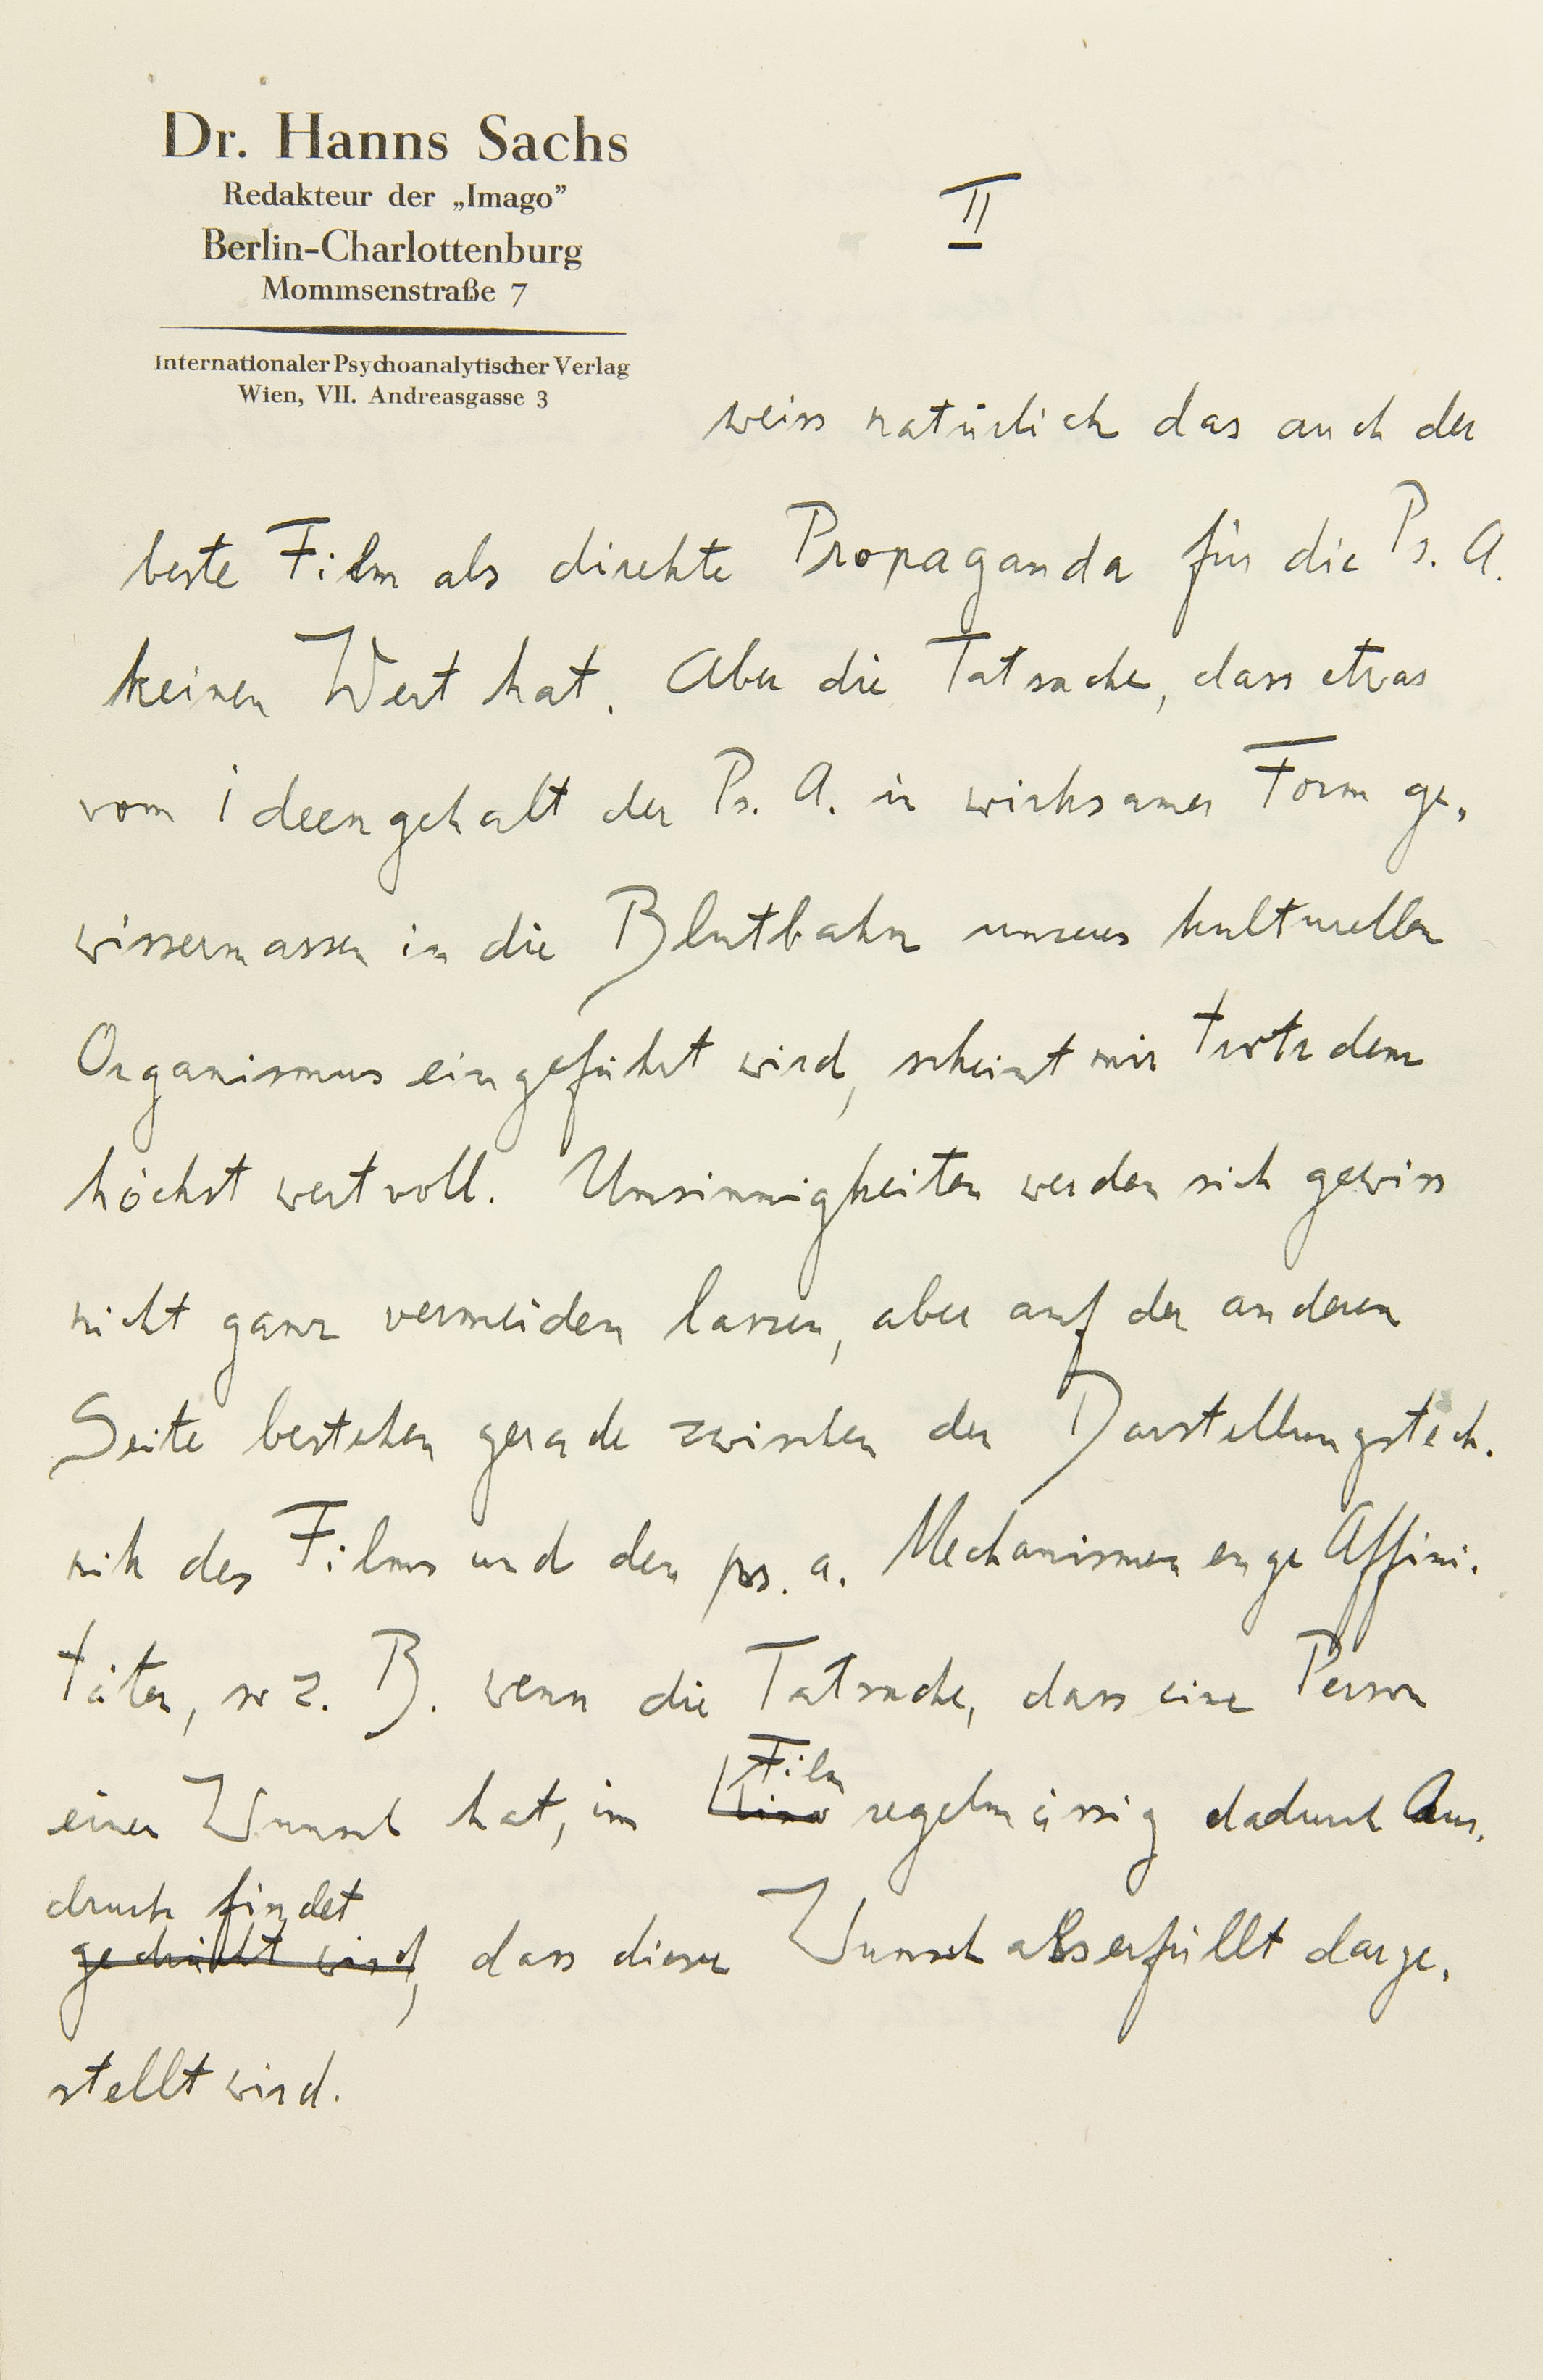 Dr. Hanns Sachs
Redakteur der „Imago”
Berlin-Charlottenburg
Mommsenstraße 7
Internationaler Psychoanalytischer Verlag
Wien, VII. Andreasgasse 3
II
weiss natürlich das auch der
beste Film als direkte Propaganda für die Ps. A.
keinen Wert hat. Aber die Tatsache, dass etwas
vom ideengehalt der Ps. A. in wirksamer Form ge-
wissermassen in die Blutbahn unseres kulturellen
Organismus eingeführt wird, scheint mir trotzdem
höchst wertvoll. Unsinnigkeiten werden sich gewiss
nicht ganz vermeiden lassen, aber auf der anderen
Seite bestehen gerade zwischen der Darstellungstech-
nik des Films und den ps. a. Mechanismen enge Affini-
täten, so z. B. wenn die Tatsache, dass eine Person
Film
einen Wunsch hat, im Kino regelmässig dadurch Aus-
druck findet
gedrückt wird, dass dieser Wunsch als erfüllt darge-
stellt wird.